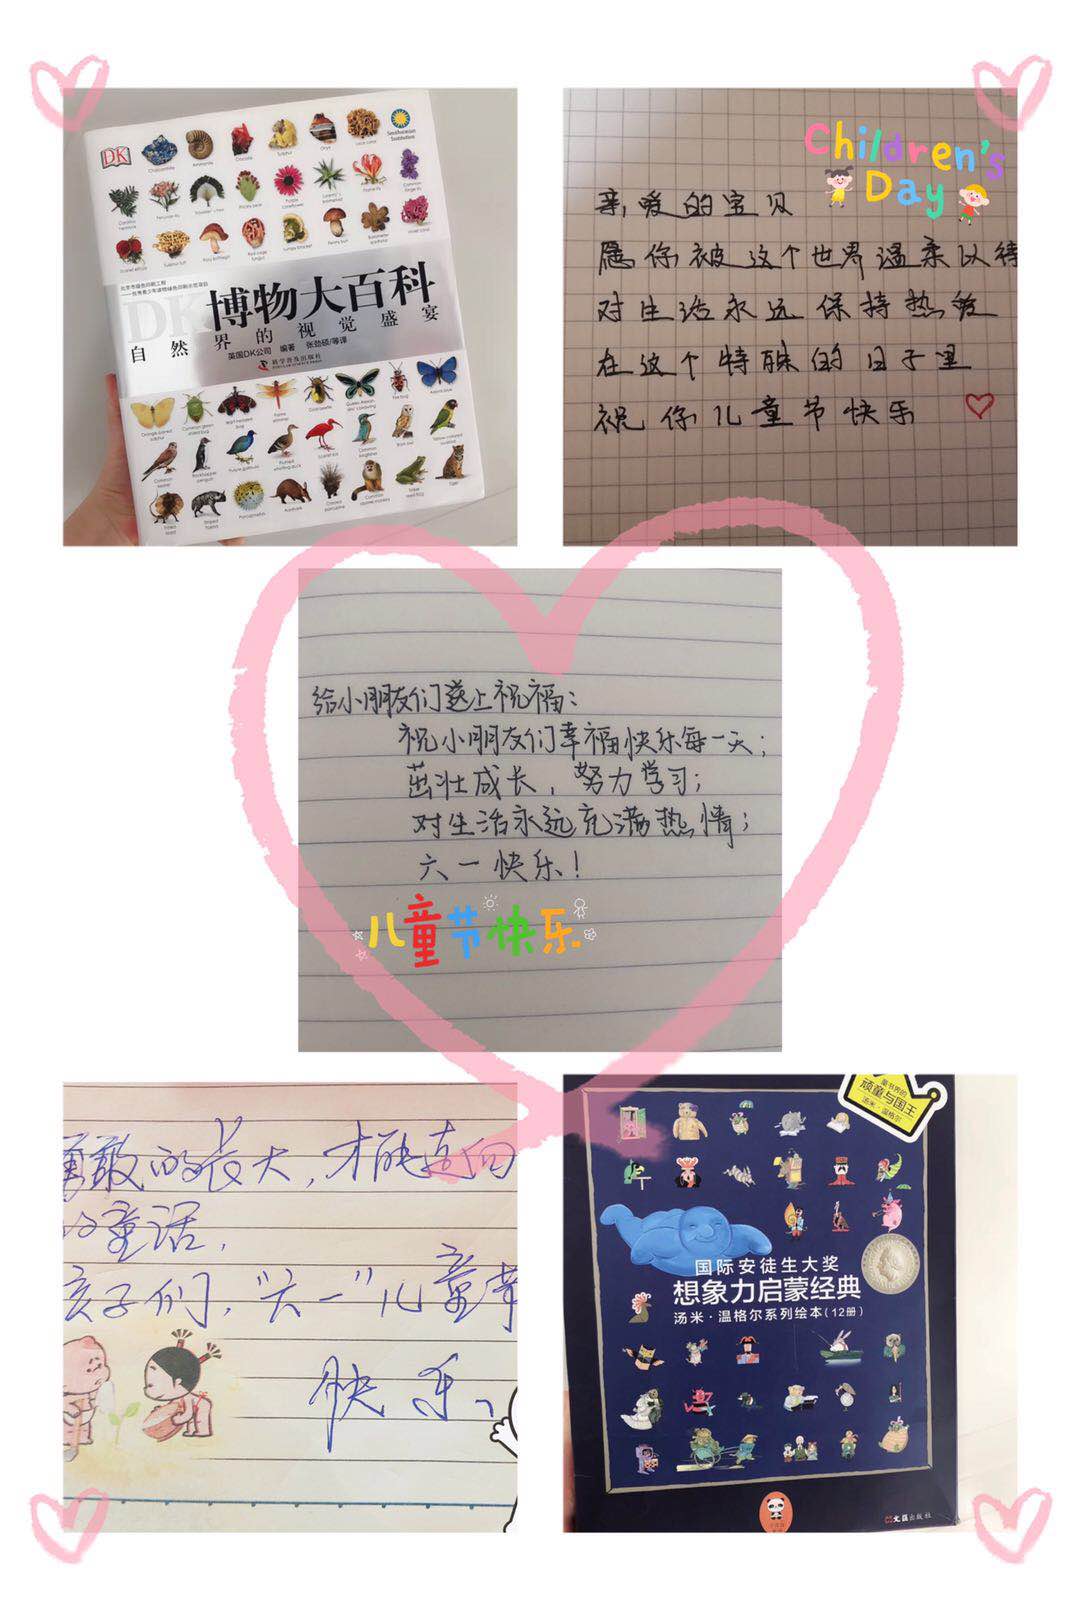 DK
Smithsonian
Institution
北京市绿色印刷工程
——优秀青少年读物绿色印刷示范项目
DK博物大百科
自然界的视觉盛宴
英国DK公司 编著 张劲硕/等译
科学普及出版社
Children's
Day
亲爱的宝贝
愿你被这个世界温柔以待
对生活永远保持热爱
在这个特殊的日子里
祝你儿童节快乐
给小朋友们送上祝福:
祝小朋友们幸福快乐每一天;
茁壮成长,努力学习;
对生活永远充满热情;
六一快乐!
儿童节快乐
勇敢的长大,才能走向
的童话,
孩子们,"六一"儿童节
快乐、
童书界的
顽童与国王
汤米·温格尔
国际安徒生大奖
想象力启蒙经典
汤米·温格尔系列绘本(12册)
文汇出版社